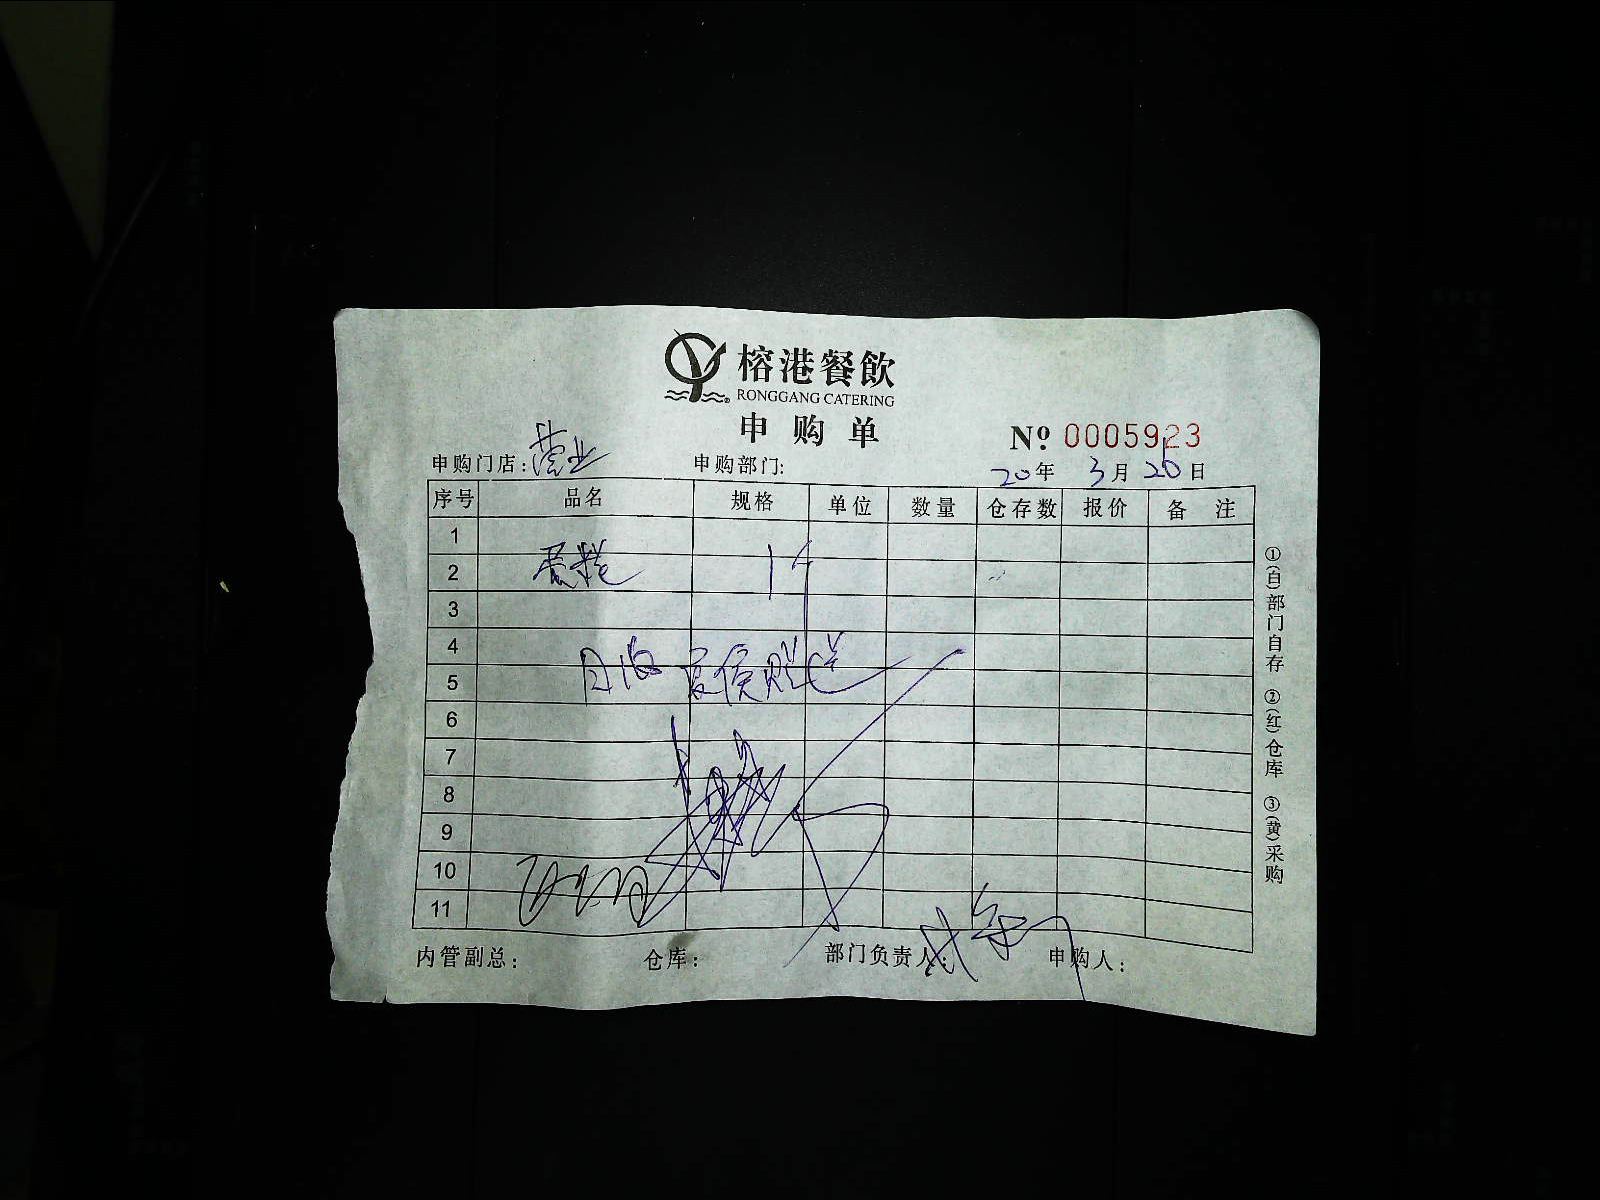 榕港餐飲
RONGGANG CATERING
申购单
Nº 0005923
申购门店:营业 申购部门: 20年 3月 26日
序号 品名 规格 单位 数量 仓存数 报价 备 注
1
2 蛋糕 1个
3
4
5 赠送
6
7
8
9
10
11
内管副总: 仓库: 部门负责人: 申购人:
①(白)部门自存 ②(红)仓库 ③(黄)采购